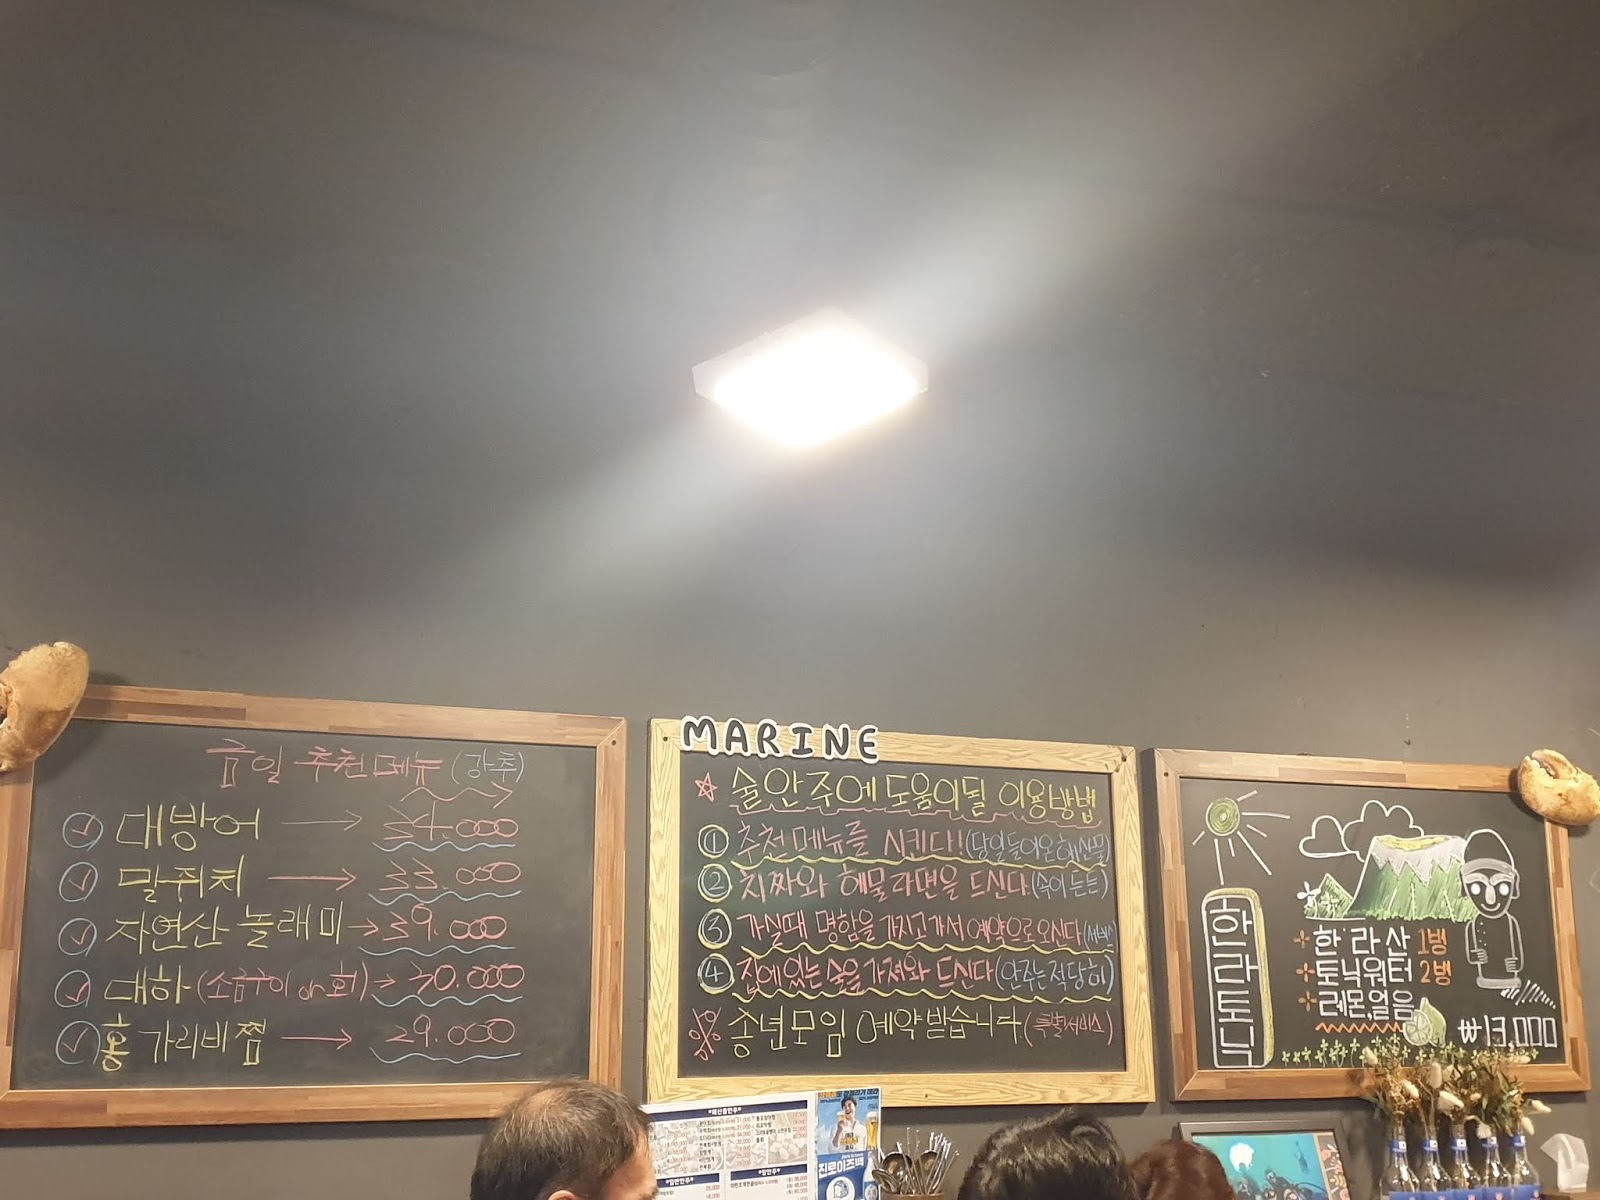 금일 추천메뉴 (강추)
대방어 → 34.000
말쥐치 → 33.000
자연산 놀래미 → 39.000
대하 (소금구이 or 회) → 30.000
홍가리비찜 → 29.000
MARINE
술안주에 도움이될 이용방법
① 추천메뉴를 시킨다! (당일들어온해산물)
② 치짜와 해물라면을 드신다. (속이 든든)
③ 가실때 명함을 가지고가서 예약으로 오신다 (서비스)
④ 집에있는 술을 가져와 드신다 (안주는 적당히)
※ 송년모임 예약받습니다. (특별서비스)
한라토닉
한라산 1병
토닉워터 2병
레몬,얼음
₩13,000
진로이즈백